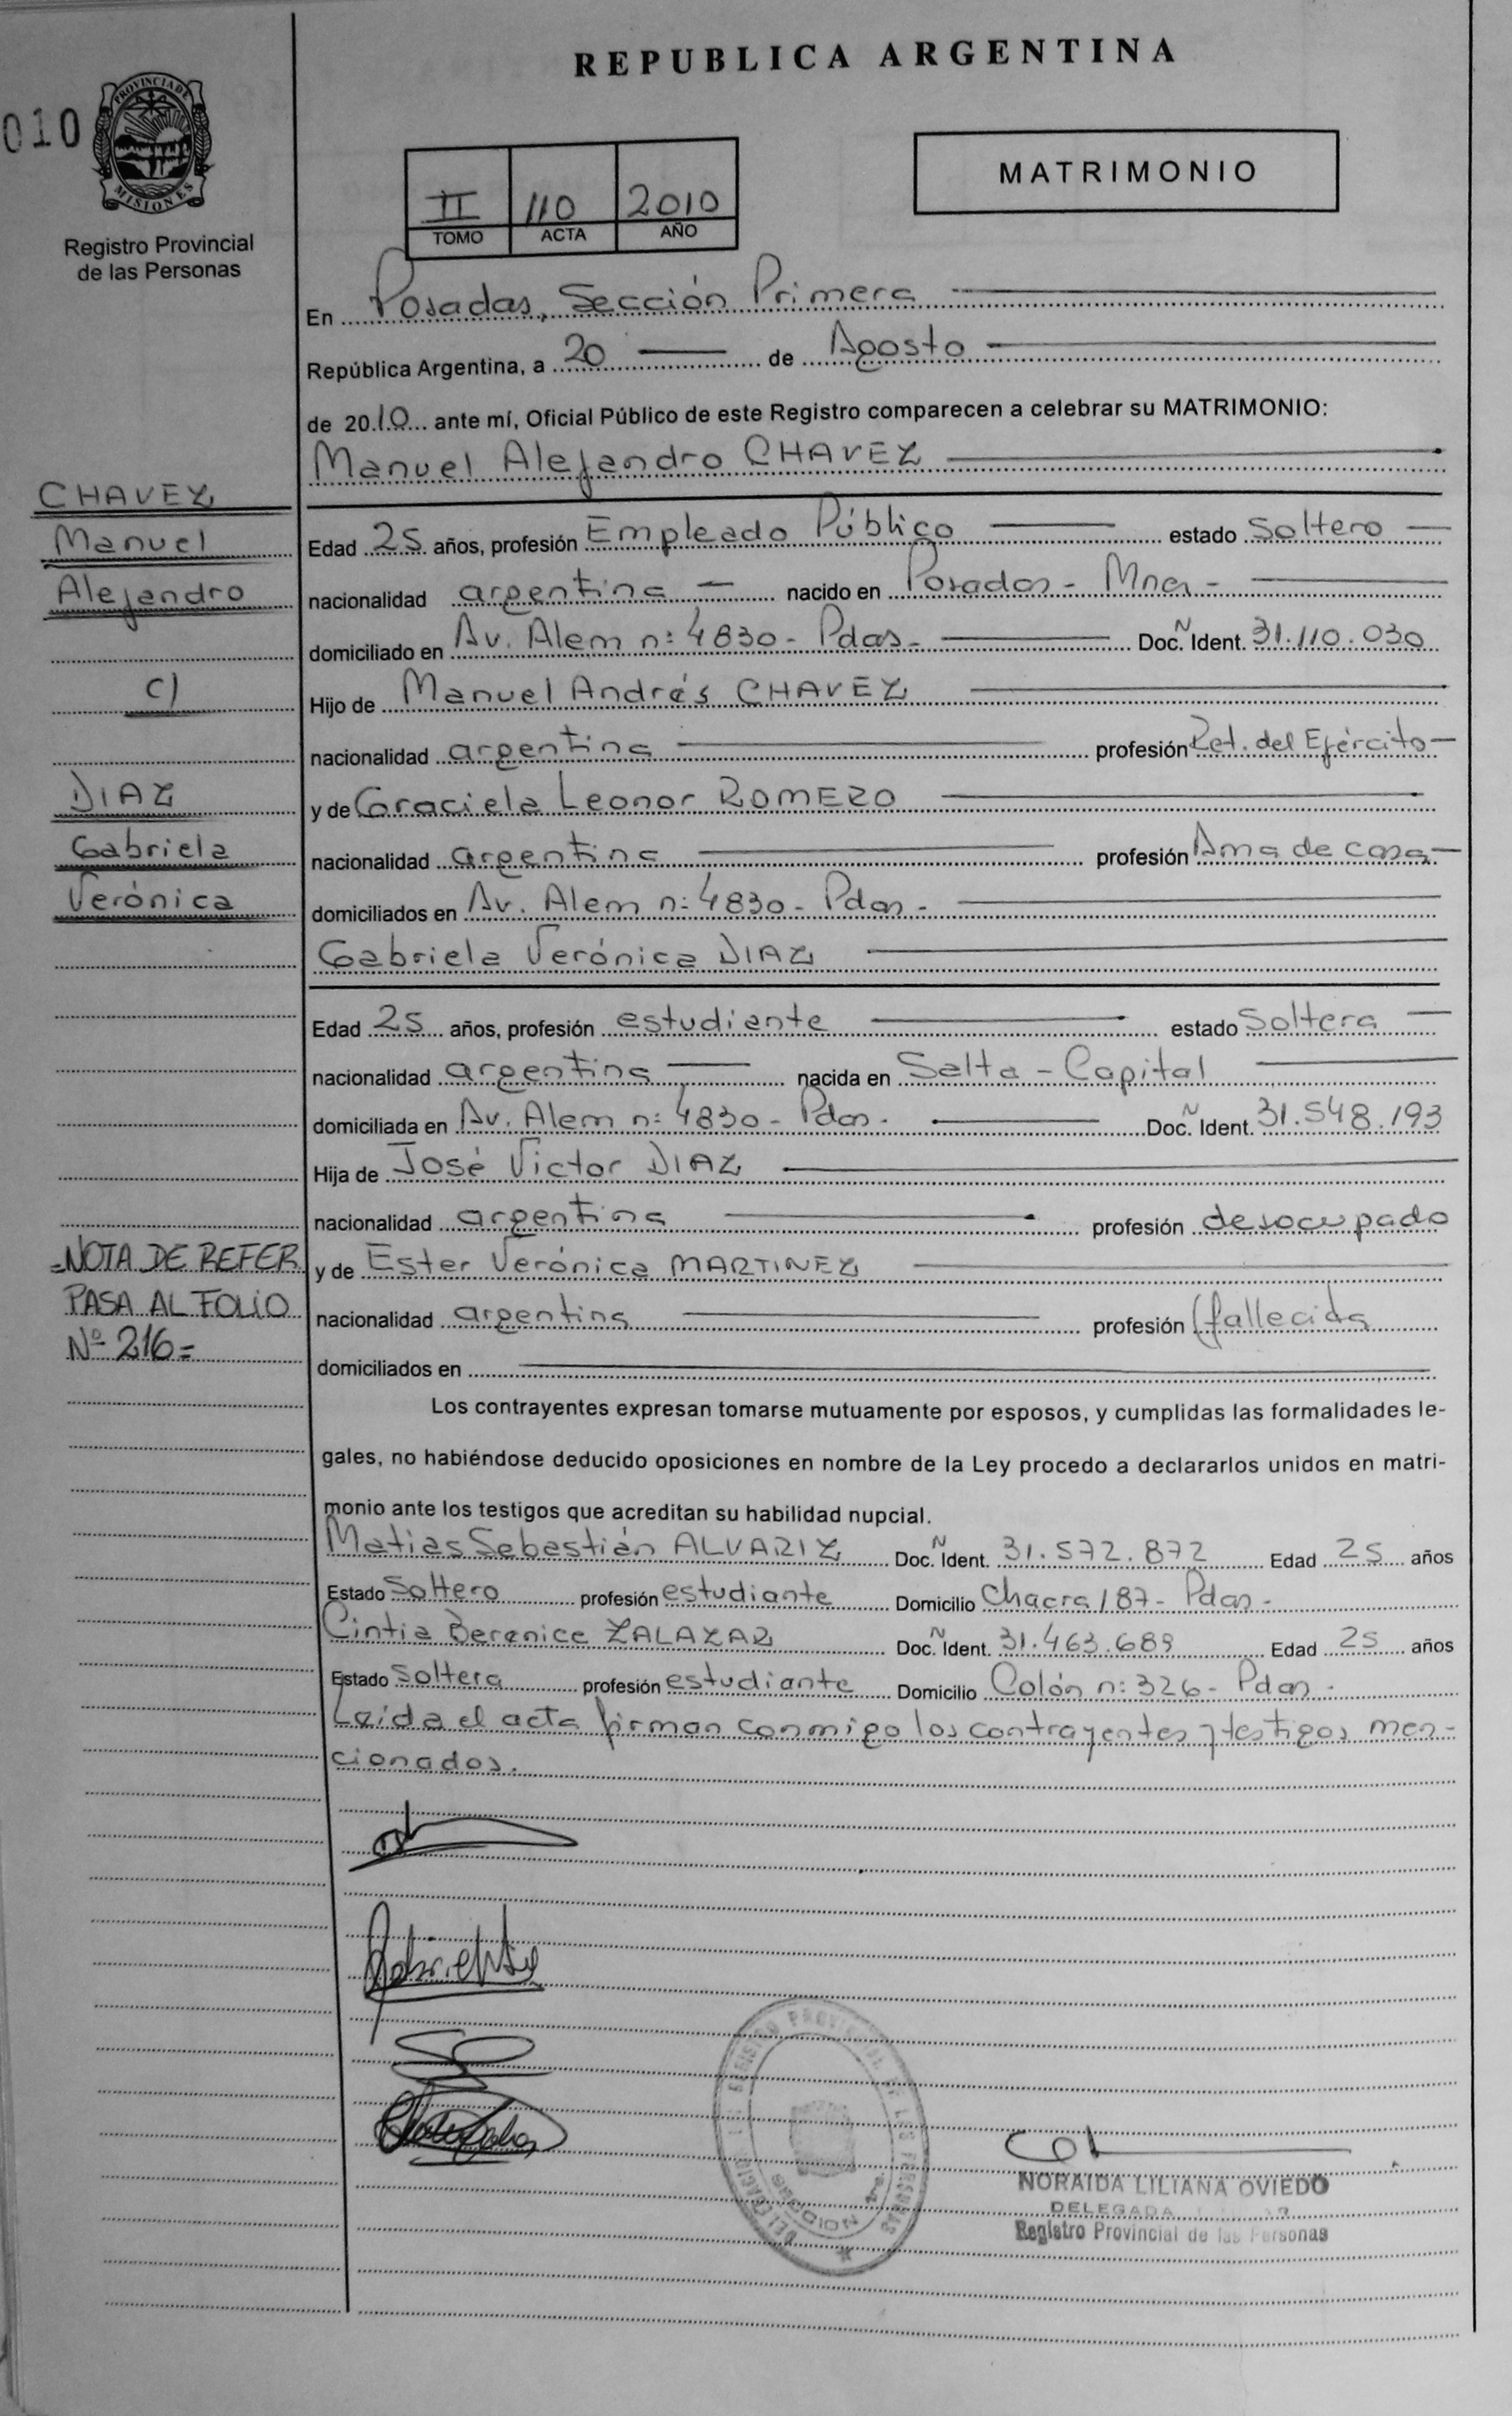 REPUBLICA ARGENTINA
010
PROVINCIA DE
MISIONES
Registro Provincial
de las Personas
II 110 2010
TOMO ACTA AÑO
MATRIMONIO
En Posadas, Sección Primera
República Argentina, a 20 de Agosto
de 2010 ante mí, Oficial Público de este Registro comparecen a celebrar su MATRIMONIO:
Manuel Alejandro CHAVEZ
CHAVEZ
Manuel
Alejandro
c/
DIAZ
Gabriela
Verónica
Edad 25 años, profesión Empleado Público estado Soltero
nacionalidad argentina nacido en Posadas - Mnes -
domiciliado en Av. Alem n: 4830 - Pdas - Doc. N Ident. 31.110.030
Hijo de Manuel Andrés CHAVEZ
nacionalidad argentina profesión Ret. del Ejército
y de Graciela Leonor ROMERO
nacionalidad argentina profesión Ama de casa
domiciliados en Av. Alem n: 4830 - Pdas -
Gabriela Verónica DIAZ
Edad 25 años, profesión estudiante estado Soltera
nacionalidad argentina nacida en Salta - Capital
domiciliada en Av. Alem n: 4830 - Pdas - Doc. N Ident. 31.548.193
Hija de José Victor DIAZ
nacionalidad argentina profesión desocupado
=NOTA DE REFER
PASA AL FOLIO
Nº 216=
y de Ester Verónica MARTINEZ
nacionalidad argentina profesión (fallecida
domiciliados en
Los contrayentes expresan tomarse mutuamente por esposos, y cumplidas las formalidades le-
gales, no habiéndose deducido oposiciones en nombre de la Ley procedo a declararlos unidos en matri-
monio ante los testigos que acreditan su habilidad nupcial.
Matias Sebastián ALVARIZ Doc. N Ident. 31.572.872 Edad 25 años
Estado Soltero profesión estudiante Domicilio Chacra 187 - Pdas -
Cintia Berenice ZALAZAR Doc. N Ident. 31.463.689 Edad 25 años
Estado Soltera profesión estudiante Domicilio Colón n: 326 - Pdas -
Leída el acta firman conmigo los contrayentes y testigos men-
cionados.
NORAIDA LILIANA OVIEDO
DELEGADA
Registro Provincial de las Personas